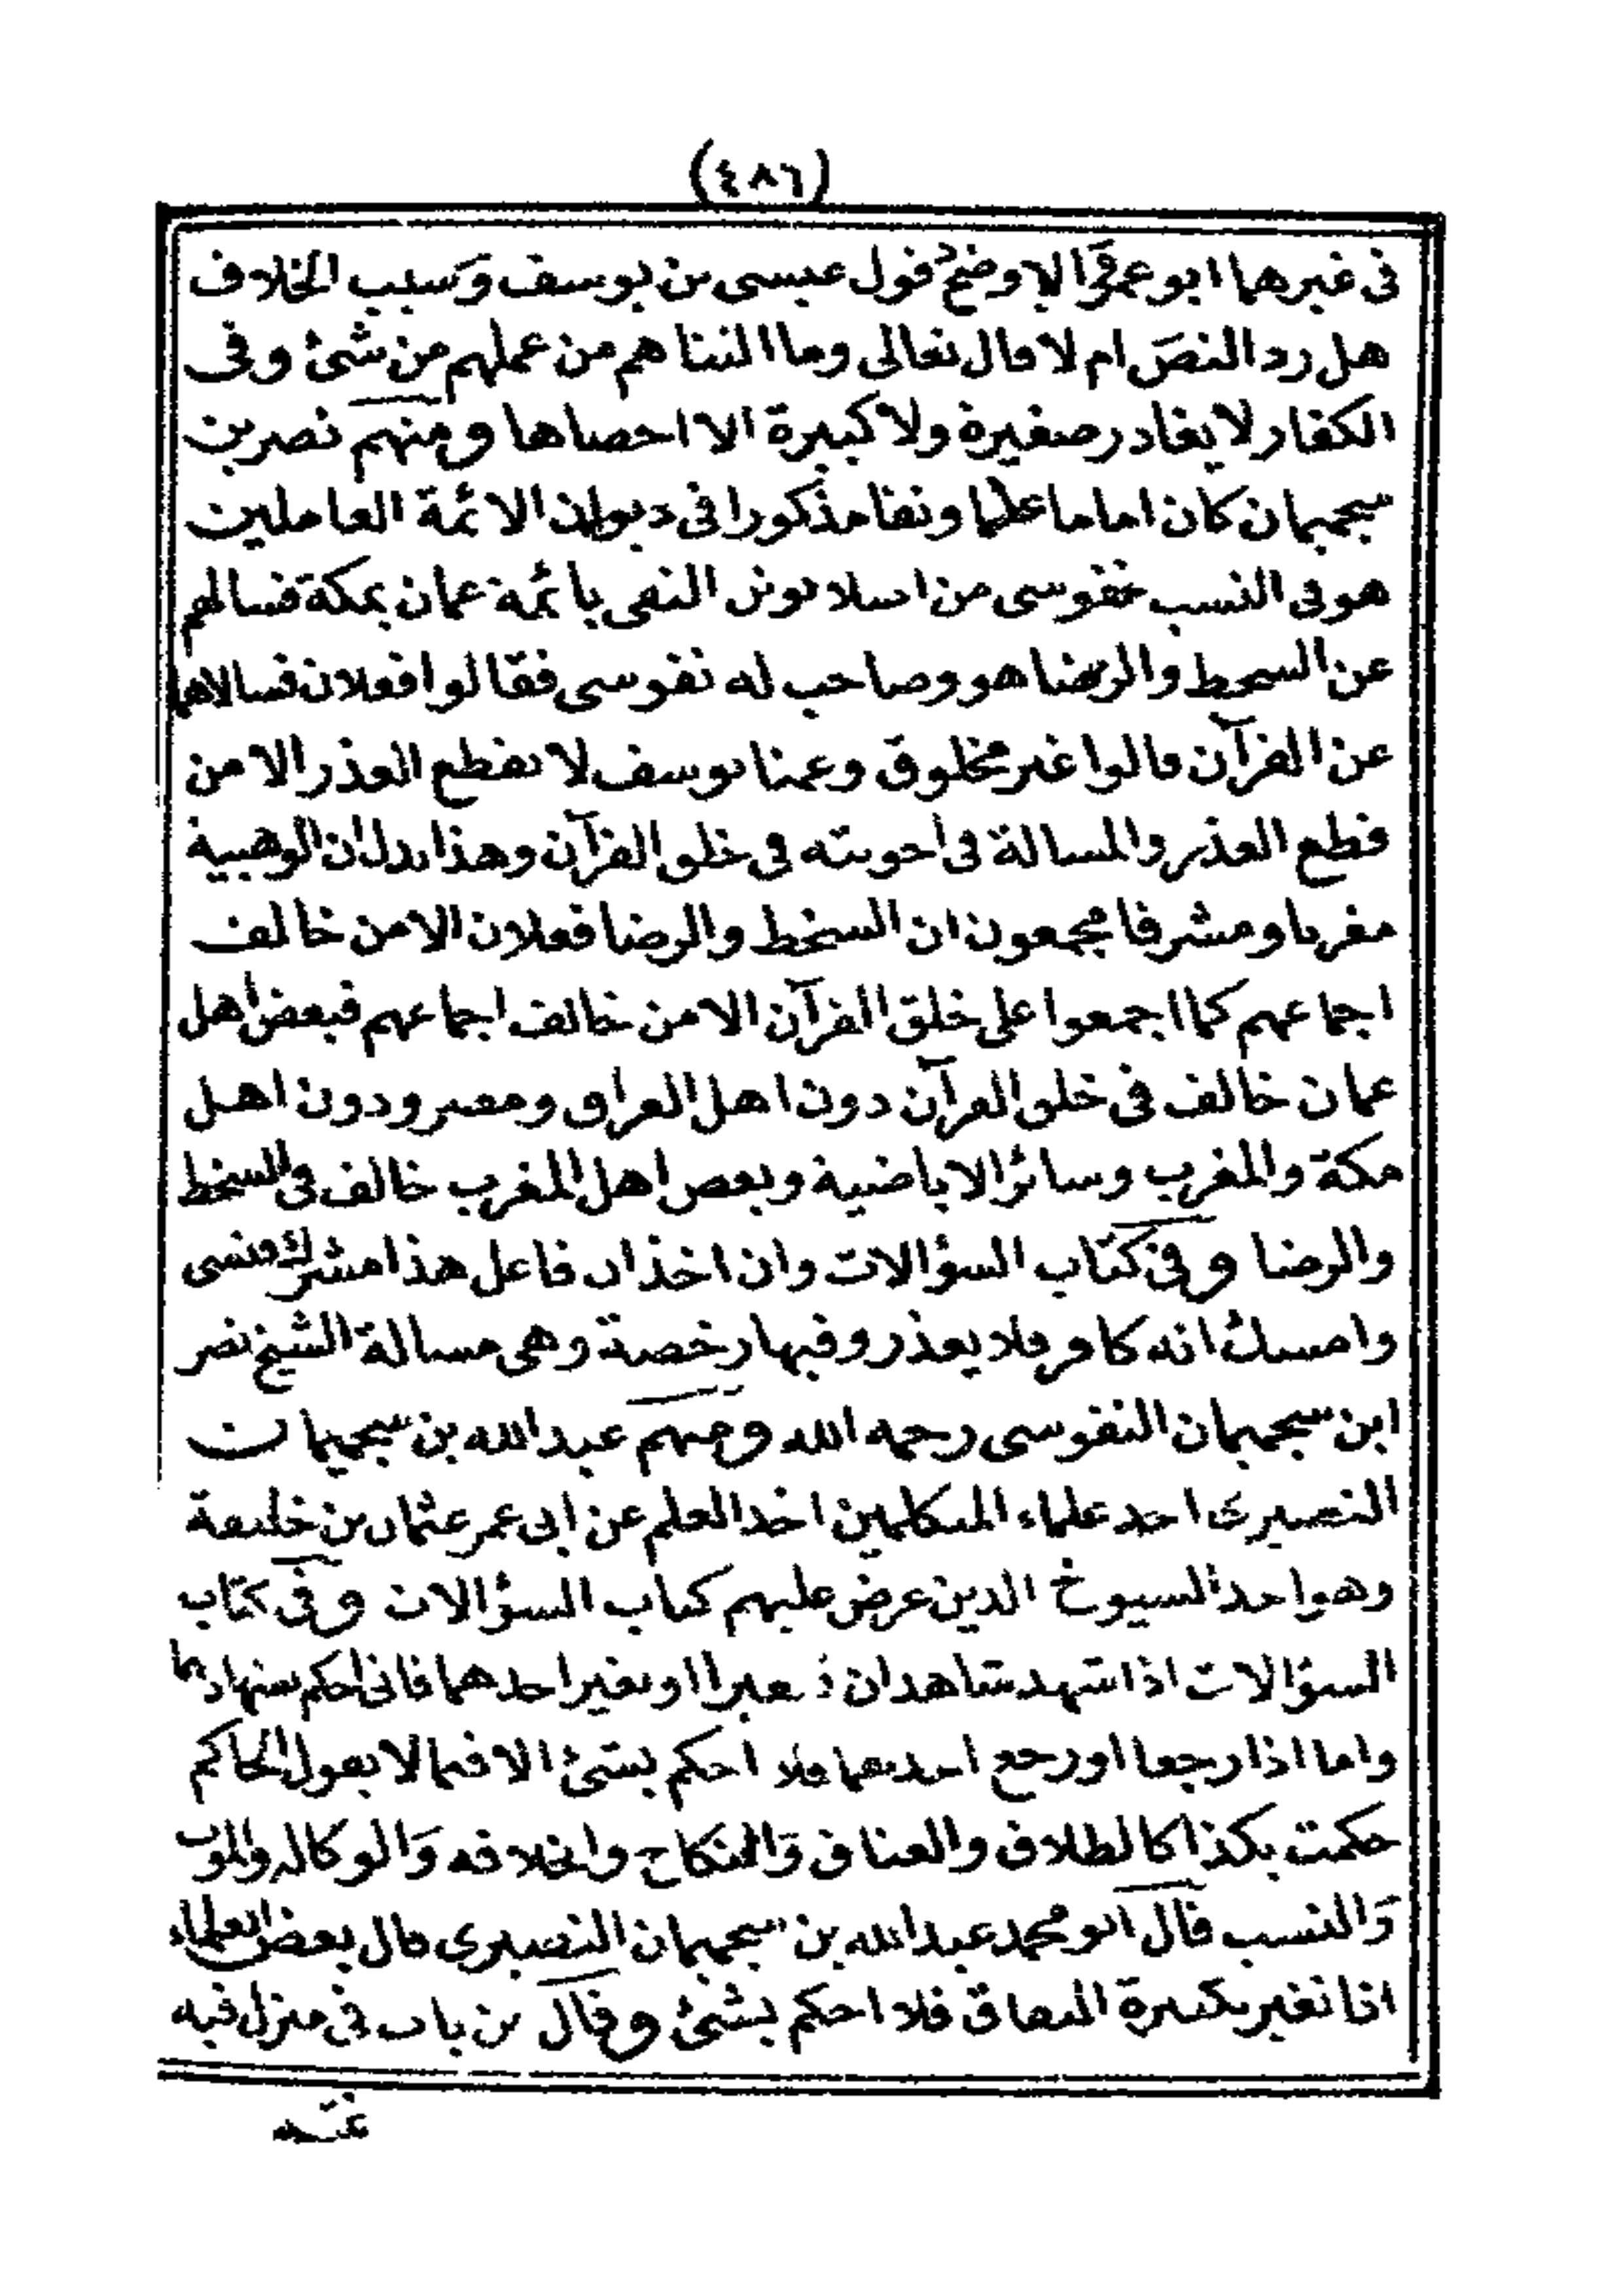 (٤٨٦)
فى غيرهما ابو عمرو الاوضح قول عيسى بن يوسف وسبب الخلاف
هل رد النص ام لا قال تعالى وما التناهم من عملهم من شئ وفى
الكفار لا يغادر صغيرة ولا كبيرة الا احصاها ومنهم نصر بن
سجميمان كان اماما عالما وثقا مذكورا فى ديوان الائمة العاملين
هو فى النسب نفوسى من التقى بائمة عمان بمكة فسالهم
عن السخط والرضا هو وصاحب له نفوسى فقالوا افعلان فسالاهما
عن القرآن قالوا غير مخلوق وعمنا يوسف لا يقطع العذر الا من
قطع العذر والمسالة فى اجوبته فى خلق القرآن وهذا يدل ان الوهبية
مغربا ومشرقا مجمعون ان السخط والرضا فعلان الا من خالف
اجماعهم كما اجمعوا على خلق القرآن الا من خالف اجماعهم فبعض اهل
عمان خالف فى خلق القرآن دون اهل العراق ومصر ودون اهل
مكة والمغرب وسائر الاباضية وبعض اهل المغرب خالف فى السخط
والرضا وفى كتاب السؤالات وان اخذ ان فاعل هذا مشرك فنسى
وامسك انه كافر فلا يعذر وفيها رخصة وهى مسالة الشيخ نصر
ابن سجميمان النفوسى رحمه الله ومنهم عبد الله بن سجميمان
النصيرى احد علماء المتكلمين اخذ العلم عن ابى عمر عثمان بن خليفة
وهو احد الشيوخ الذين عرض عليهم كتاب السؤالات وفى كتاب
السؤالات اذا شهد شاهدان تغيرا او تغير احدهما فانى احكم بشهادتهما
واما اذا رجعا او رجع احدهما فلا احكم بشئ الا فيما لا يقول الحاكم
حكمت بكذا كالطلاق والعتاق والنكاح والخلافه والوكاله والموت
والنسب قال ابو محمد عبد الله بن سجميمان النصيرى قال بعض العلماء
اذا تغير بكبيرة النفاق فلا احكم بشئ وقال من بات فى منزل فيه